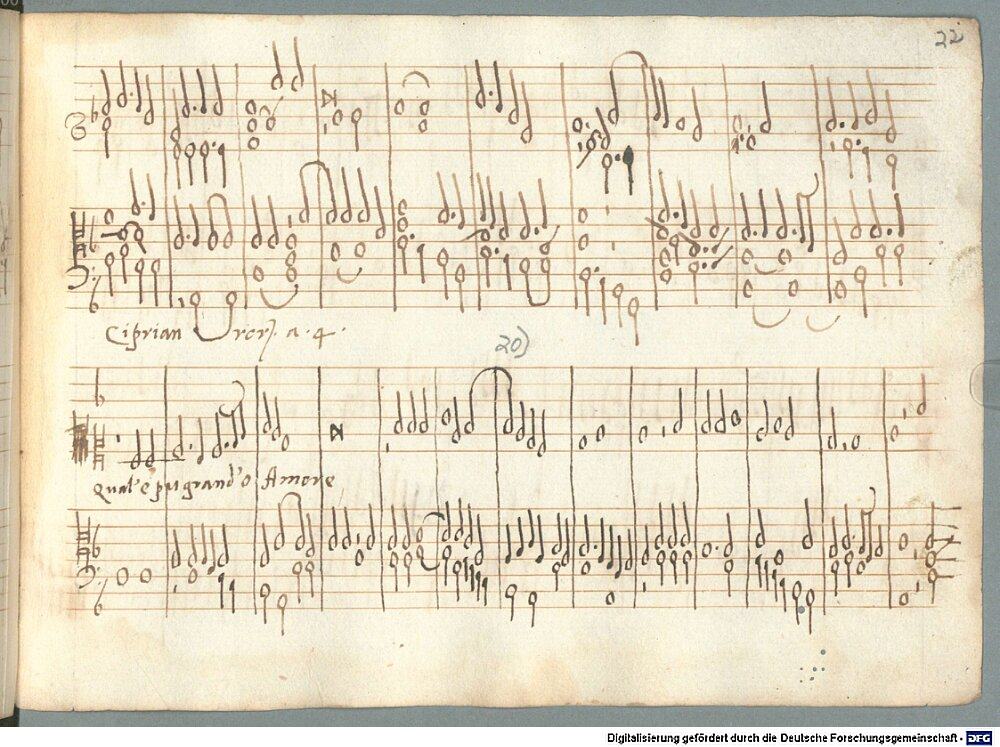 22
Ciprian rore. a. 4.
20)
Qual'e piu grand'o Amore
Digitalisierung gefördert durch die Deutsche Forschungsgemeinschaft - DFG